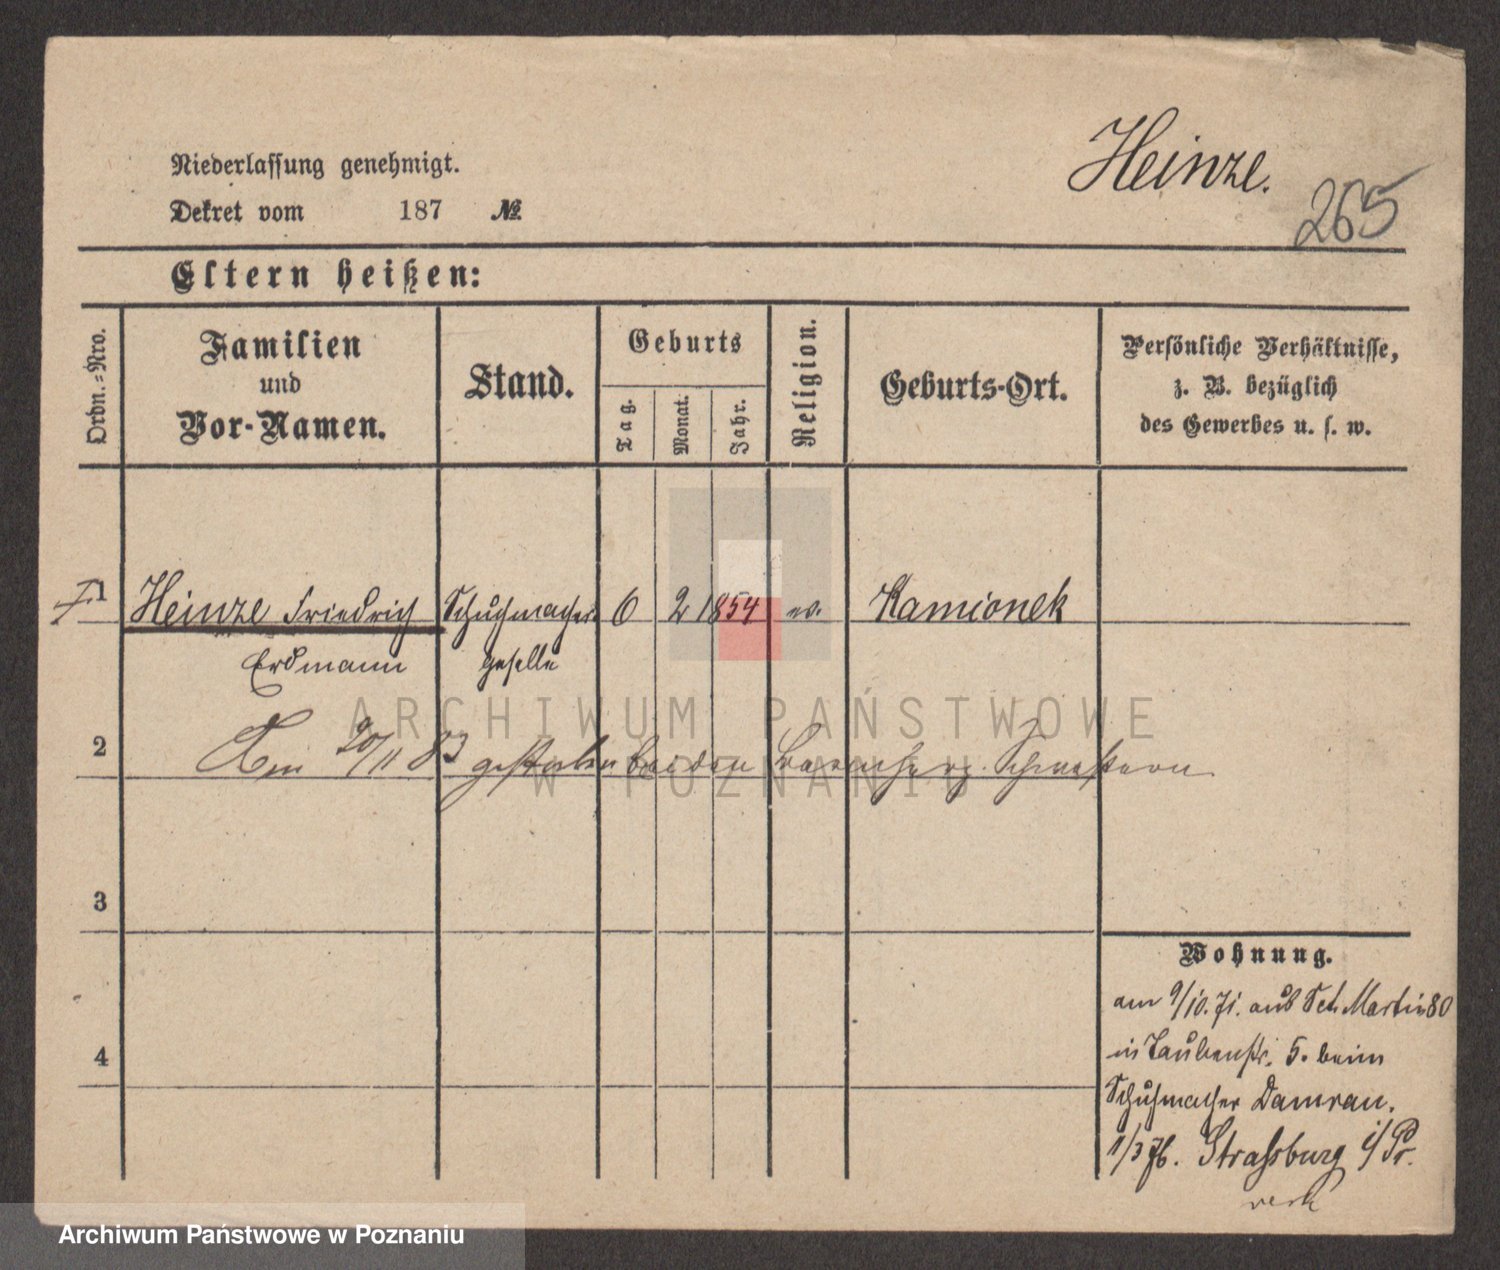 Heinze.
265
Niederlassung genehmigt.
Dekret vom 187 №
Eltern heißen:
Ordn.=Nro.
Familien
und
Vor-Namen.
Stand.
Geburts
Tag.
Monat.
Jahr.
Religion.
Geburts-Ort.
Persönliche Verhältnisse,
z. B. bezüglich
des Gewerbes u. s. w.
1 Heinze Friedrich Schuhmacher 6 2 1854 ev. Kamionek
Erdmann geselle
2
Am 20/11 83 gestorben bei den barmherz. Schwestern
3
Wohnung.
am 9/10. 71. aus Sct. Martin 80
4
in Taubenstr. 5. beim
Schuhmacher Damrau.
1/3 76. Strassburg i/Pr.
ARCHIWUM PAŃSTWOWE
W POZNANIU
Archiwum Państwowe w Poznaniu